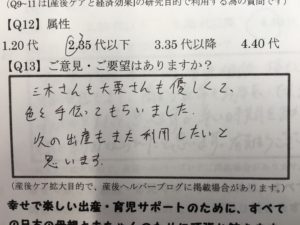 (Q9~11は『産後ケアと経済効果』の研究目的で利用する為の質問です)
【Q12】属性
1.20代 2.35代以下 3.35代以降 4.40代
【Q13】ご意見・ご要望はありますか?
三木さんも大栗さんも優しくて、
色々手伝ってもらいました。
次の出産もまた利用したいと
思います。
(産後ケア拡大目的で、産後ヘルパーブログに掲載場合があります。)
幸せで楽しい出産・育児サポートのために、すべて